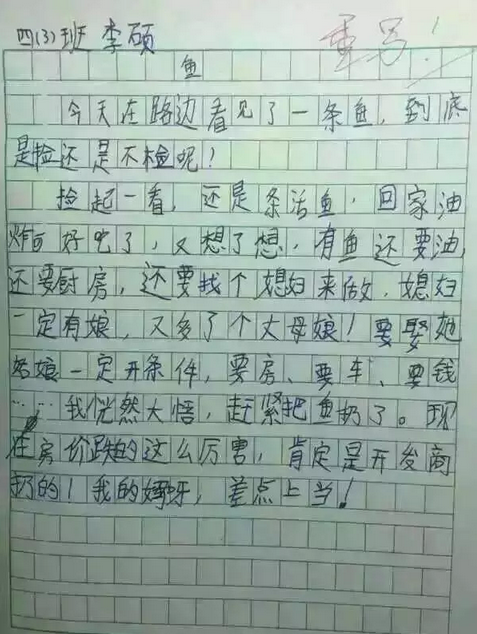 四(3)班 李硕
重写!
鱼
今天在路边看见了一条鱼,到底
是捡还是不检呢?
捡起一看,还是条活鱼,回家油
炸可好吃了,又想了想,有鱼还要油,
还要厨房,还要找个媳妇来做,媳妇
一定有娘,又多了个丈母娘!要娶她
姑娘一定开条件,要房、要车、要钱
……我恍然大悟,赶紧把鱼扔了。现
在房价跌的这么厉害,肯定是开发商
扔的!我的妈呀,差点上当!